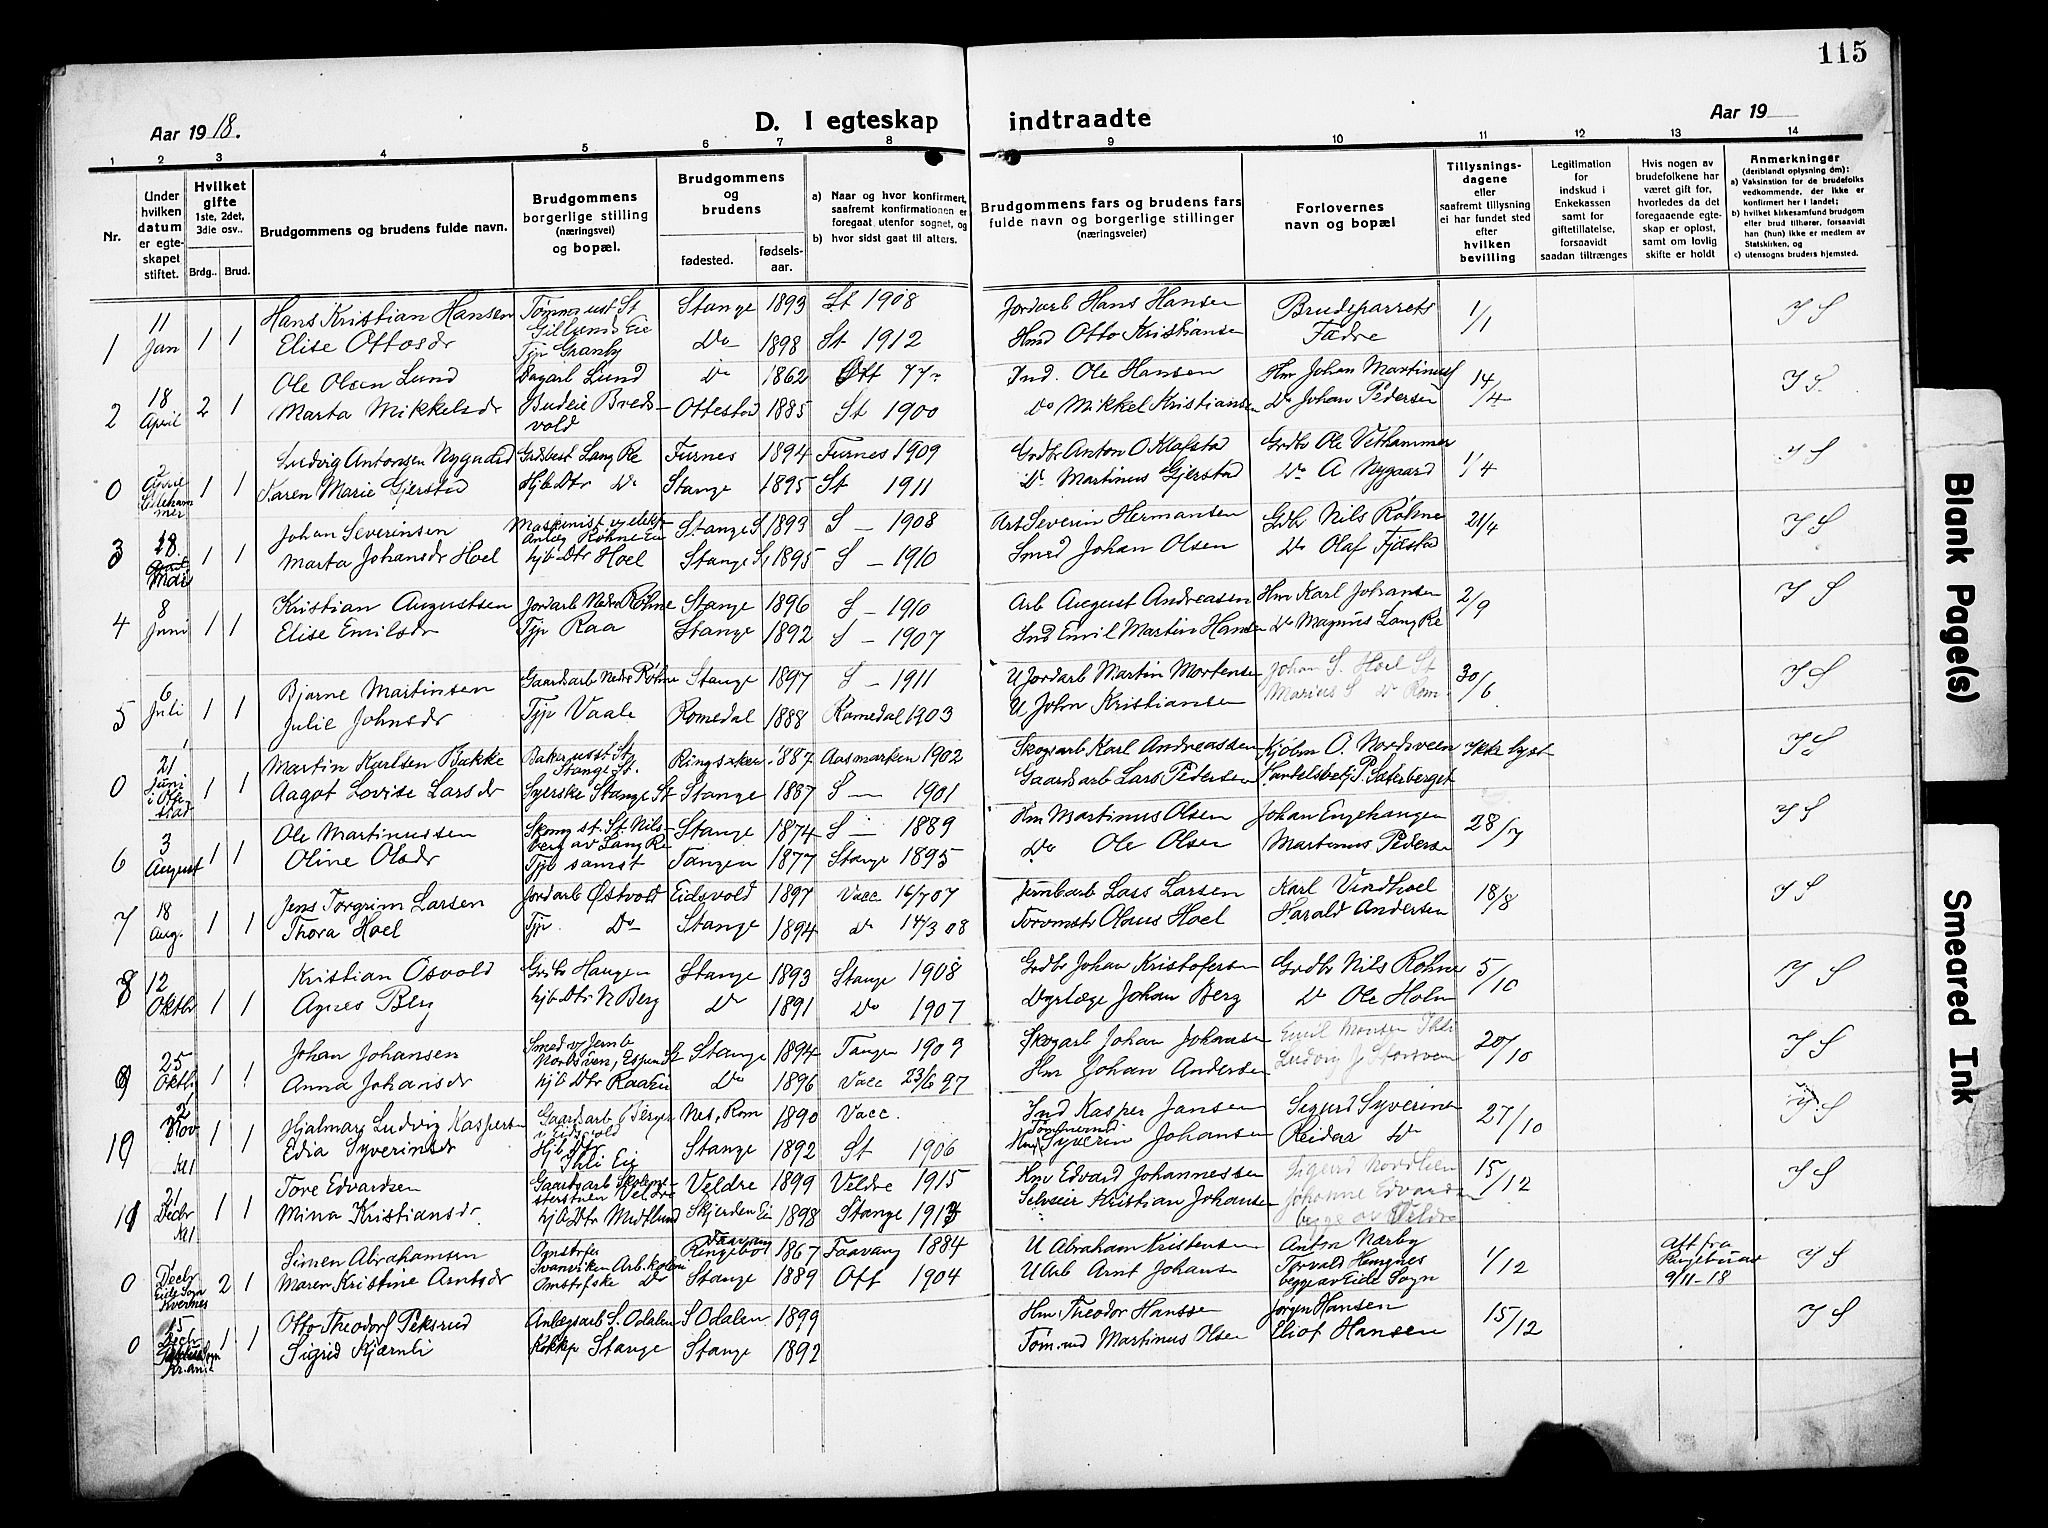 115
Aar 1918.
D. I egteskap indtraadte
Aar 19
1 2 3 4 5 6 7 8 9 10 11 12 13 14
Nr.
Under hvilken datum er egteskapet stiftet.
Hvilket gifte 1ste, 2det, 3die osv..
Brdg.. Brud.
Brudgommens og brudens fulde navn.
Brudgommens borgerlige stilling (næringsvei) og bopæl.
Brudgommens og brudens
fødested. fødsels-aar.
a) Naar og hvor konfirmert, saafremt konfirmationen er foregaat utenfor sognet, og
b) hvor sidst gaat til alters.
Brudgommens fars og brudens fars fulde navn og borgerlige stillinger (næringsveier)
Forlovernes navn og bopæl
Tillysnings-dagene eller saafremt tillysning ei har fundet sted efter hvilken bevilling
Legitimation for indskud i Enkekassen samt for giftetillatelse, forsaavidt saadan tiltrænges
Hvis nogen av brudefolkene har været gift før, hvorledes da det foregaaende egteskap er opløst, samt om lovlig skifte er holdt
Anmerkninger (deriblandt oplysning om):
a) Vaksination for de brudefolks vedkommende, der ikke er konfirmert her i landet;
b) hvilket kirkesamfund brudgom eller brud tilhører, forsaavidt han (hun) ikke er medlem av Statskirken, og
c) utensogns bruders hjemsted.
1 11 Jan 1 1 Hans Kristian Hansen Stange 1893 St 1908 Jordarb Hans Hansen Brudeparrets 1/1
Elise Ottosdr Tjp Granby Do 1898 St 1912 Hmd Otto Kristiansen Fædre
2 18 April 2 1 Ole Olsen Lund Dagarb Lund Do 1862 Ott 77 Ind. Ole Hansen Hm Johan Martinus 14/4
Marta Mikkelsdr Budeie Bredsvold Ottestad 1885 St 1900 Do Mikkel Kristiansen Do Johan Pedersen
0 2 April Lilehammer 1 1 Ludvig Antonsen Nygaard Grdsbest Lang Re Furnes 1894 Furnes 1909 Grdbr Anton O Klafstad Grdbr Ole Vethammer 1/4
Karen Marie Gjerstad Hjb Dtr Do Stange 1895 St 1911 Do Martinus Gjerstad Do A Nygaard
3 18. Mai 1 1 Johan Severinsen Maskinist v elekt Anlæg Røhne Eie Stange S 1893 S — 1908 Arb Severin Hermansen Gdbr Nils Røhne 21/4
Marta Johansdr Hoel hjb Dtr Hoel Stange S, 1895 S — 1910 Smed Johan Olsen Do Olaf Fjæstad
4 8 Juni 1 1 Kristian Augustsen Jordarb Nedre Røhne Stange 1896 S — 1910 Arb August Andreassen Hm Karl Johansen 2/9
Elise Emilsdr Tjp Raa Stange 1892 S — 1907 Ind Emil Martin Hansen Do Magnus Lang Re
5 6 Juli 1 1 Bjarne Martinsen Gaardsarb Nedre Røhne Stange 1897 S — 1911 U Jordarb Martin Mortensen Johan S. Hoel St 30/6
Julie Johnsdr Tjp Vaale Romedal 1888 Romedal 1903 U John Kristiansen Marius S Do Rom.
0 21 Juni i Ottestad 1 1 Martin Karlsen Bakke Stange St. Ringsaker 1887 Aasmarken 1902 Skogsarb Karl Andreassen Kjøbm O. Nordsveen Ikke lyst
Aagot Lovise Larsdr Syerske Stange St Stange 1887 S — 1901 Gaardsarb Lars Pedersen Handelsbetj. P. Sæterberget
6 3 August 1 1 Ole Martinussen Skomg st. St. Nilsberg av Lang Re Stange 1874 S — 1889 Hm Martinus Olsen Johan Engehaugen 28/7
Oline Olsdr Tjp samst Tangen 1877 Stange 1895 Do Ole Olsen Martinus Pedersen
7 18 Aug. 1 1 Jens Torgrim Larsen Jordarb Østvold Eidsvold 1897 Vacc 16/7 07 Jernbarb Lars Larsen Karl Vindhoel 18/8
Thora Hoel Tjp. Do Stange 1894 Do 14/3 08 Olaus Hoel Harald Andersen
8 12 Oktbr 1 1 Kristian Osvold Grdbr Haugen Stange 1893 Stange 1908 Grdbr Johan Kristofersen Grdbr Nils Røhne 5/10
Agnes Berg hjb Dtr N Berg Do 1891 Do 1907 Dyrlæge Johan Berg Do Ole Holm
9 25 Oktbr 1 1 Johan Johansen Smed v Jernb Nordsveen, Espen St Stange 1894 Tangen 1909 Skogarb Johan Johansen Emil Monsen Ihli 20/10
Anna Johansdr hjb Dtr Raaen Do 1896 Vacc 23/6 97 Hm Johan Andersen Ludvig J Storsveen
10 2 Nov 1 1 Hjalmar Ludvig Kaspersen Gaardsarb Berger i Eidsvold Nes, Rom 1890 Vacc. Ind Kasper Jansen Sigurd Syverinsen 27/10
Kl 1 Edia Syverinsdr Hjb Dtr Ihli Eie Stange 1892 St 1906 Tømmermd Syverin Johansen Reidar Do
11 21 Decbr Kl 1 1 1 Tore Edvardsen Gaardsarb Veldre Veldre 1899 Veldre 1915 Hm Edvard Johannessen Sigurd Nordlien 15/12
Mina Kristiansdr hjb Dtr Midtlund Skjerden Eie 1898 Stange 1913 Selveier Kristian Johansen Johanne Edvardsen begge av Veldre
0 Decbr Eide Sogn Kvernes 2 1 Simen Abrahamsen Faavang Ringebo 1867 Faavang 1884 U Abraham Kristensen Anton Nærby 1/12 Att fra 9/11-18
Maren Kristine Arntsdr Do Stange 1889 Ott 1904 U Arb Arnt Johansen Torvald Hengnes begge av Eide Sogn
0 15 Decbr Kr.ania 1 1 Otto Theodorf Peksrud Anlægsarb S. Odalen S Odalen 1899 Hm Theodor Hansse Jørgen Hansen 15/12
Sigrid Kjærnli Kokkp Stange Stange 1892 Tøm.md Martinus Olsen Eliot Hansen
Blank Page(s)
Smeared Ink